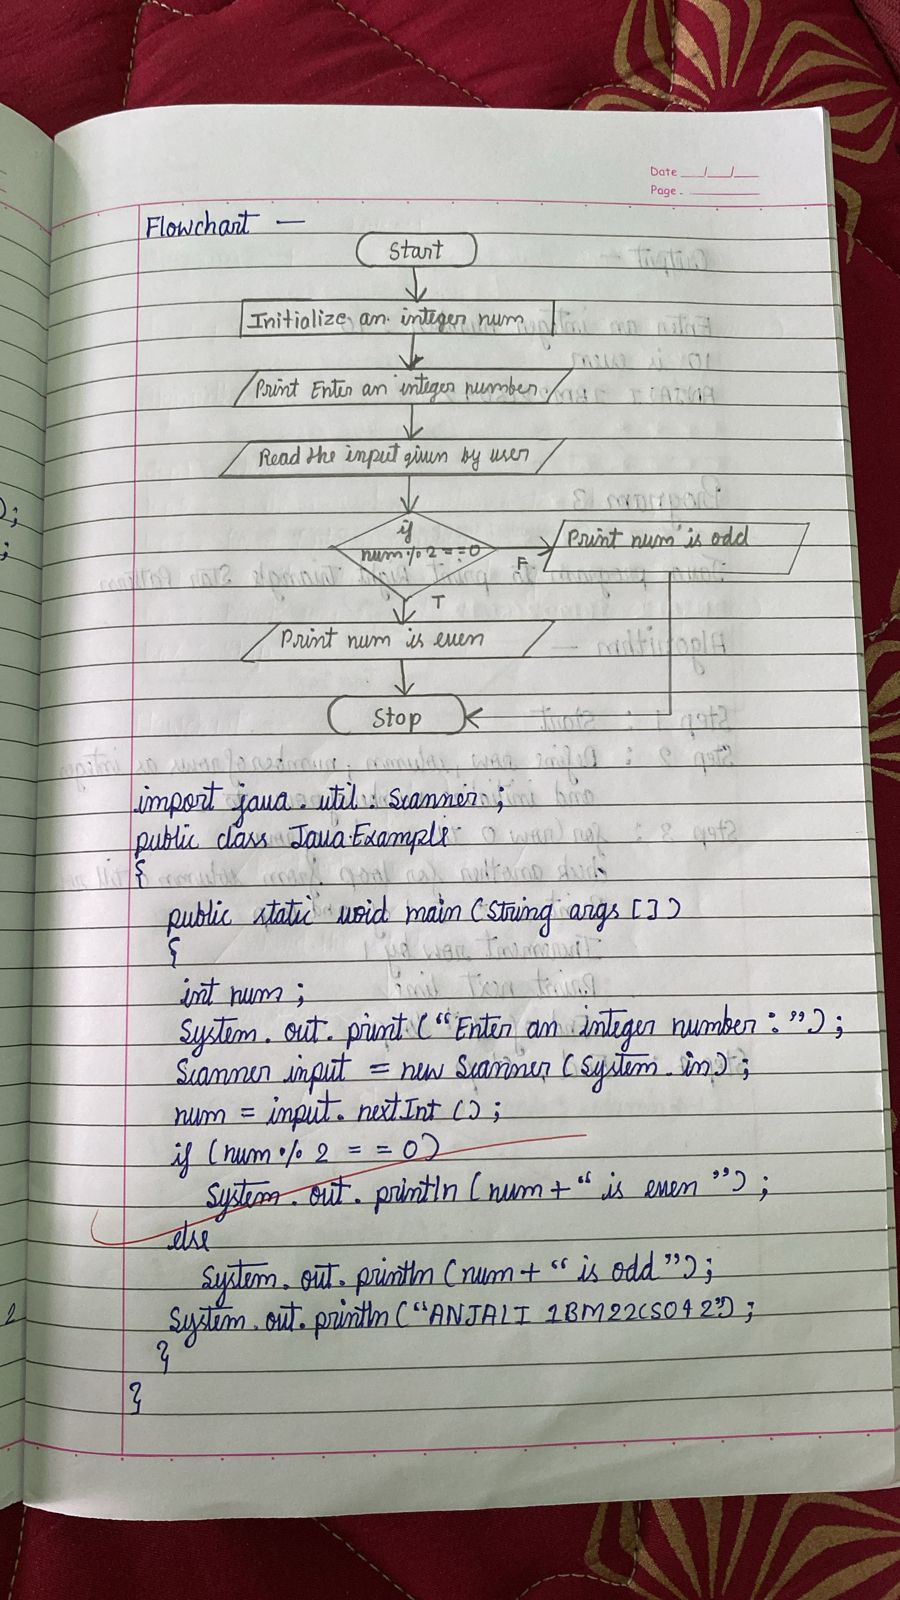 Date __/__/__
Page. ________
Flowchart —
Start
Initialize an integer num
Print Enter an integer number
Read the input given by user
if
num % 2 == 0
F
Print num is odd
T
Print num is even
Stop
import java. util. Scanner ;
public class Java Example
{
public static void main (String args [])
{
int num ;
System. out. print (“Enter an integer number : ”) ;
Scanner input = new Scanner (System. in) ;
num = input. nextInt () ;
if (num % 2 = = 0)
System. out. println (num + “ is even ”) ;
else
System. out. println (num + “ is odd ”) ;
System. out. println (“ANJALI 1BM22CS042”) ;
}
}
) ;
;
2